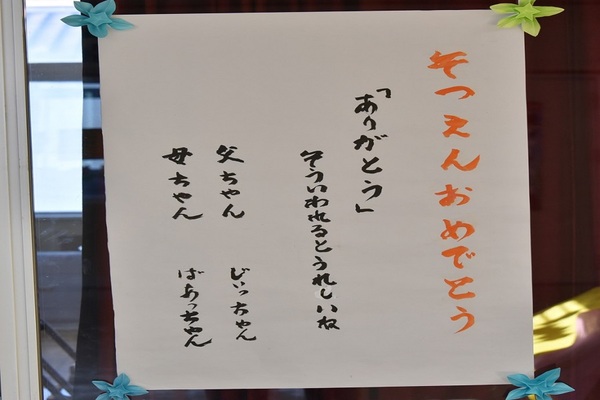 そつえんおめでとう
「ありがとう」
そういわれるとうれしいね
父ちゃん　じいっちゃん
母ちゃん　ばあっちゃん